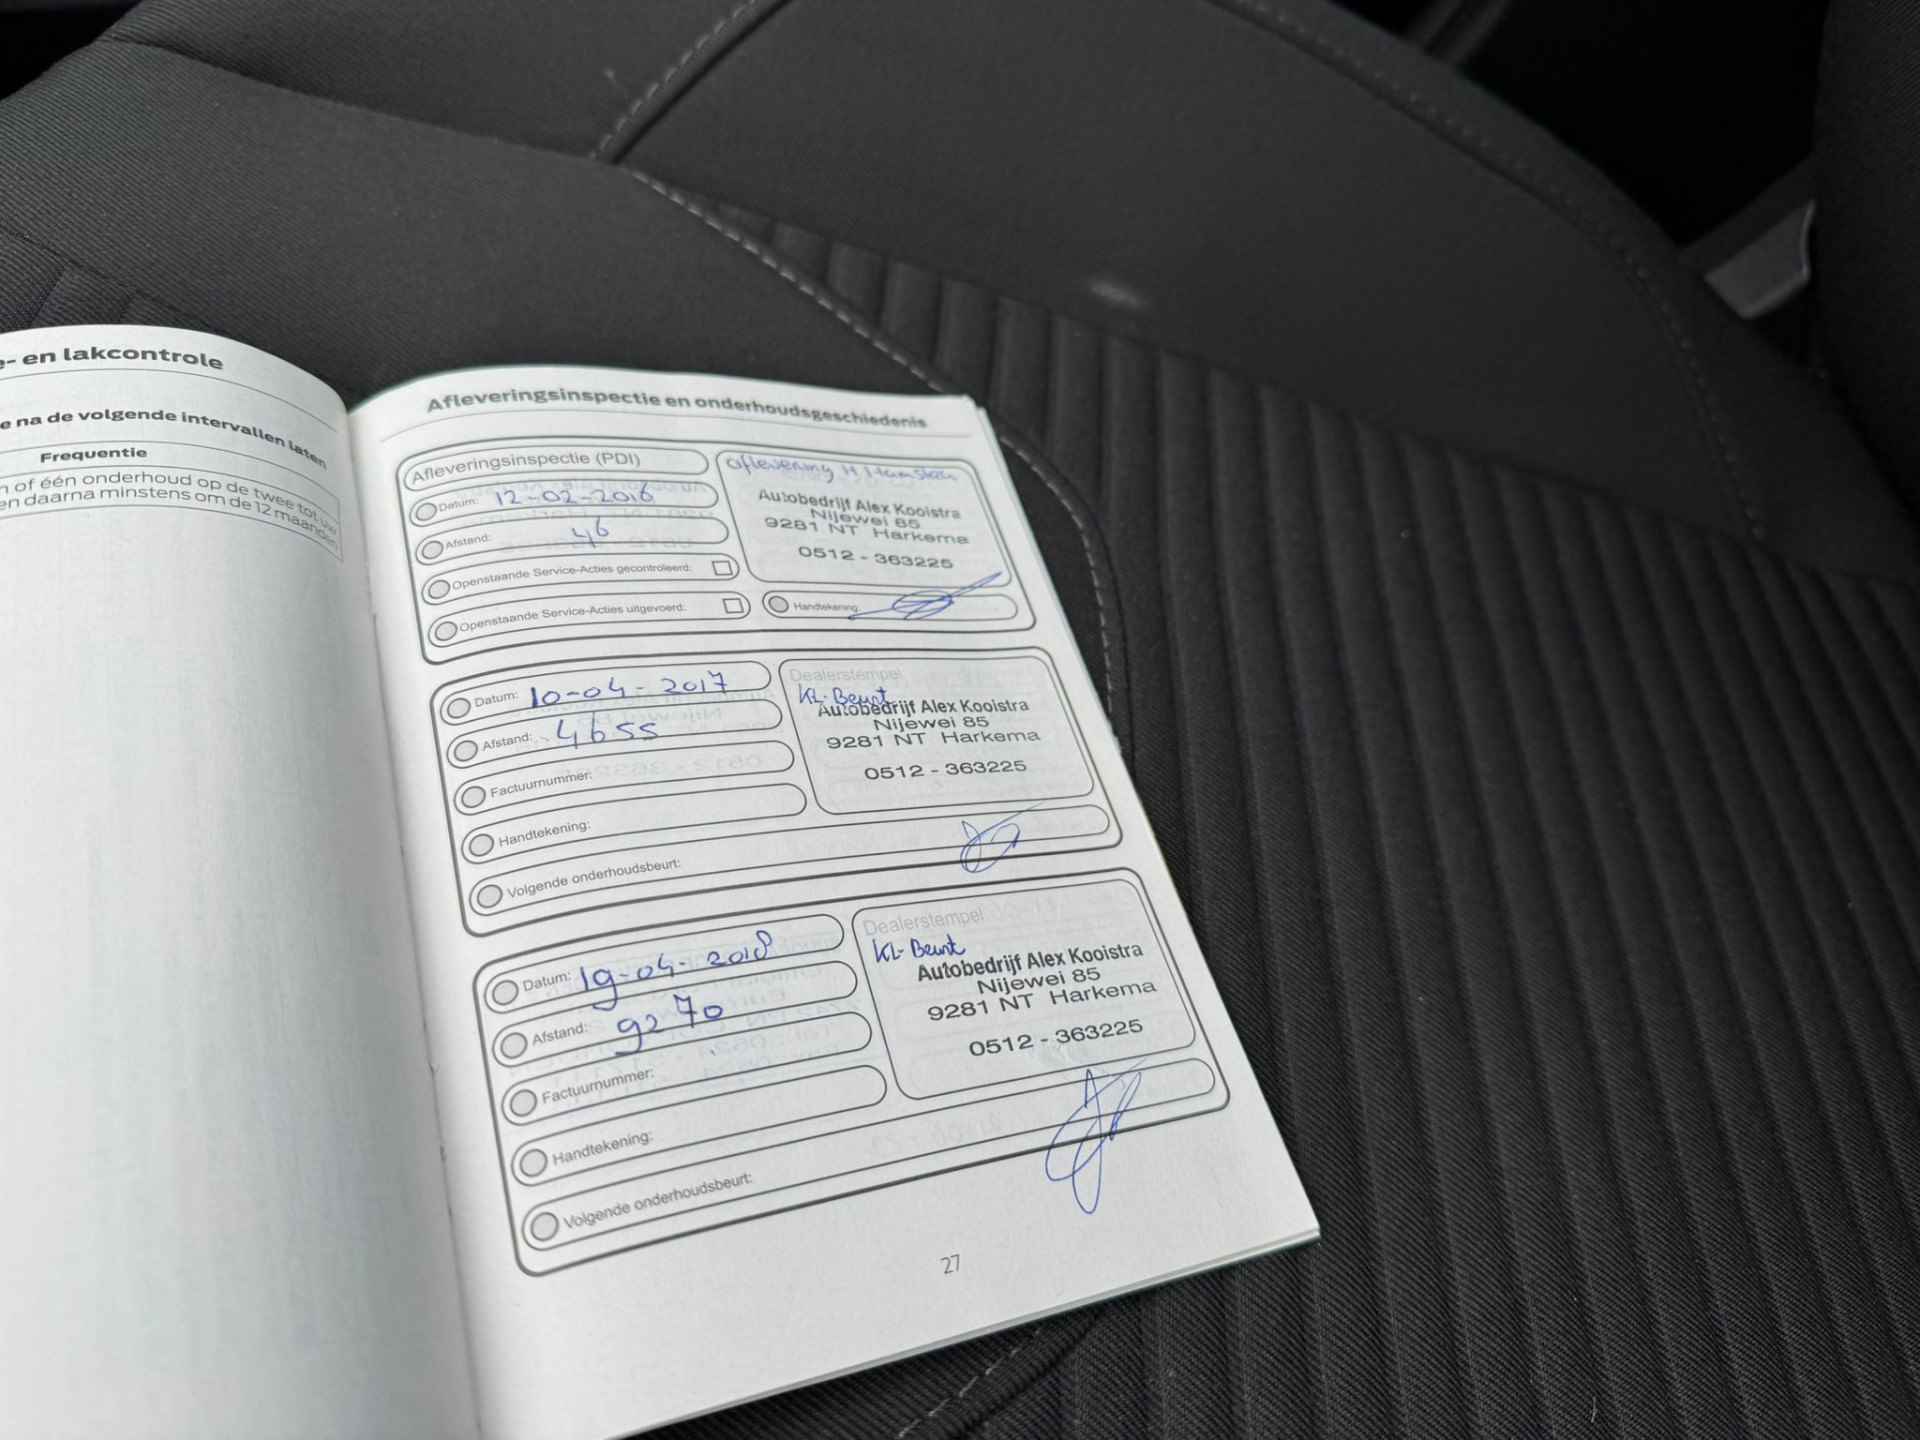 - en lakcontrole
e na de volgende intervallen laten
Frequentie
n of één onderhoud op de twee tot uw
en daarna minstens om de 12 maanden
Afleveringsinspectie en onderhoudsgeschiedenis
Afleveringsinspectie (PDI)
aflevering
Datum: 12-02-2016
Autobedrijf Alex Kooistra
Nijewei 85
9281 NT Harkema
0512 - 363225
Afstand: 46
Openstaande Service-Acties gecontroleerd:
Openstaande Service-Acties uitgevoerd:
Handtekening:
Datum: 10-04-2017
Dealerstempel
KL-Beurt
Autobedrijf Alex Kooistra
Nijewei 85
9281 NT Harkema
0512 - 363225
Afstand: 4655
Factuurnummer:
Handtekening:
Volgende onderhoudsbeurt:
Datum: 19-04-2018
Dealerstempel
KL-Beurt
Autobedrijf Alex Kooistra
Nijewei 85
9281 NT Harkema
0512 - 363225
Afstand: 9270
Factuurnummer:
Handtekening:
Volgende onderhoudsbeurt:
27